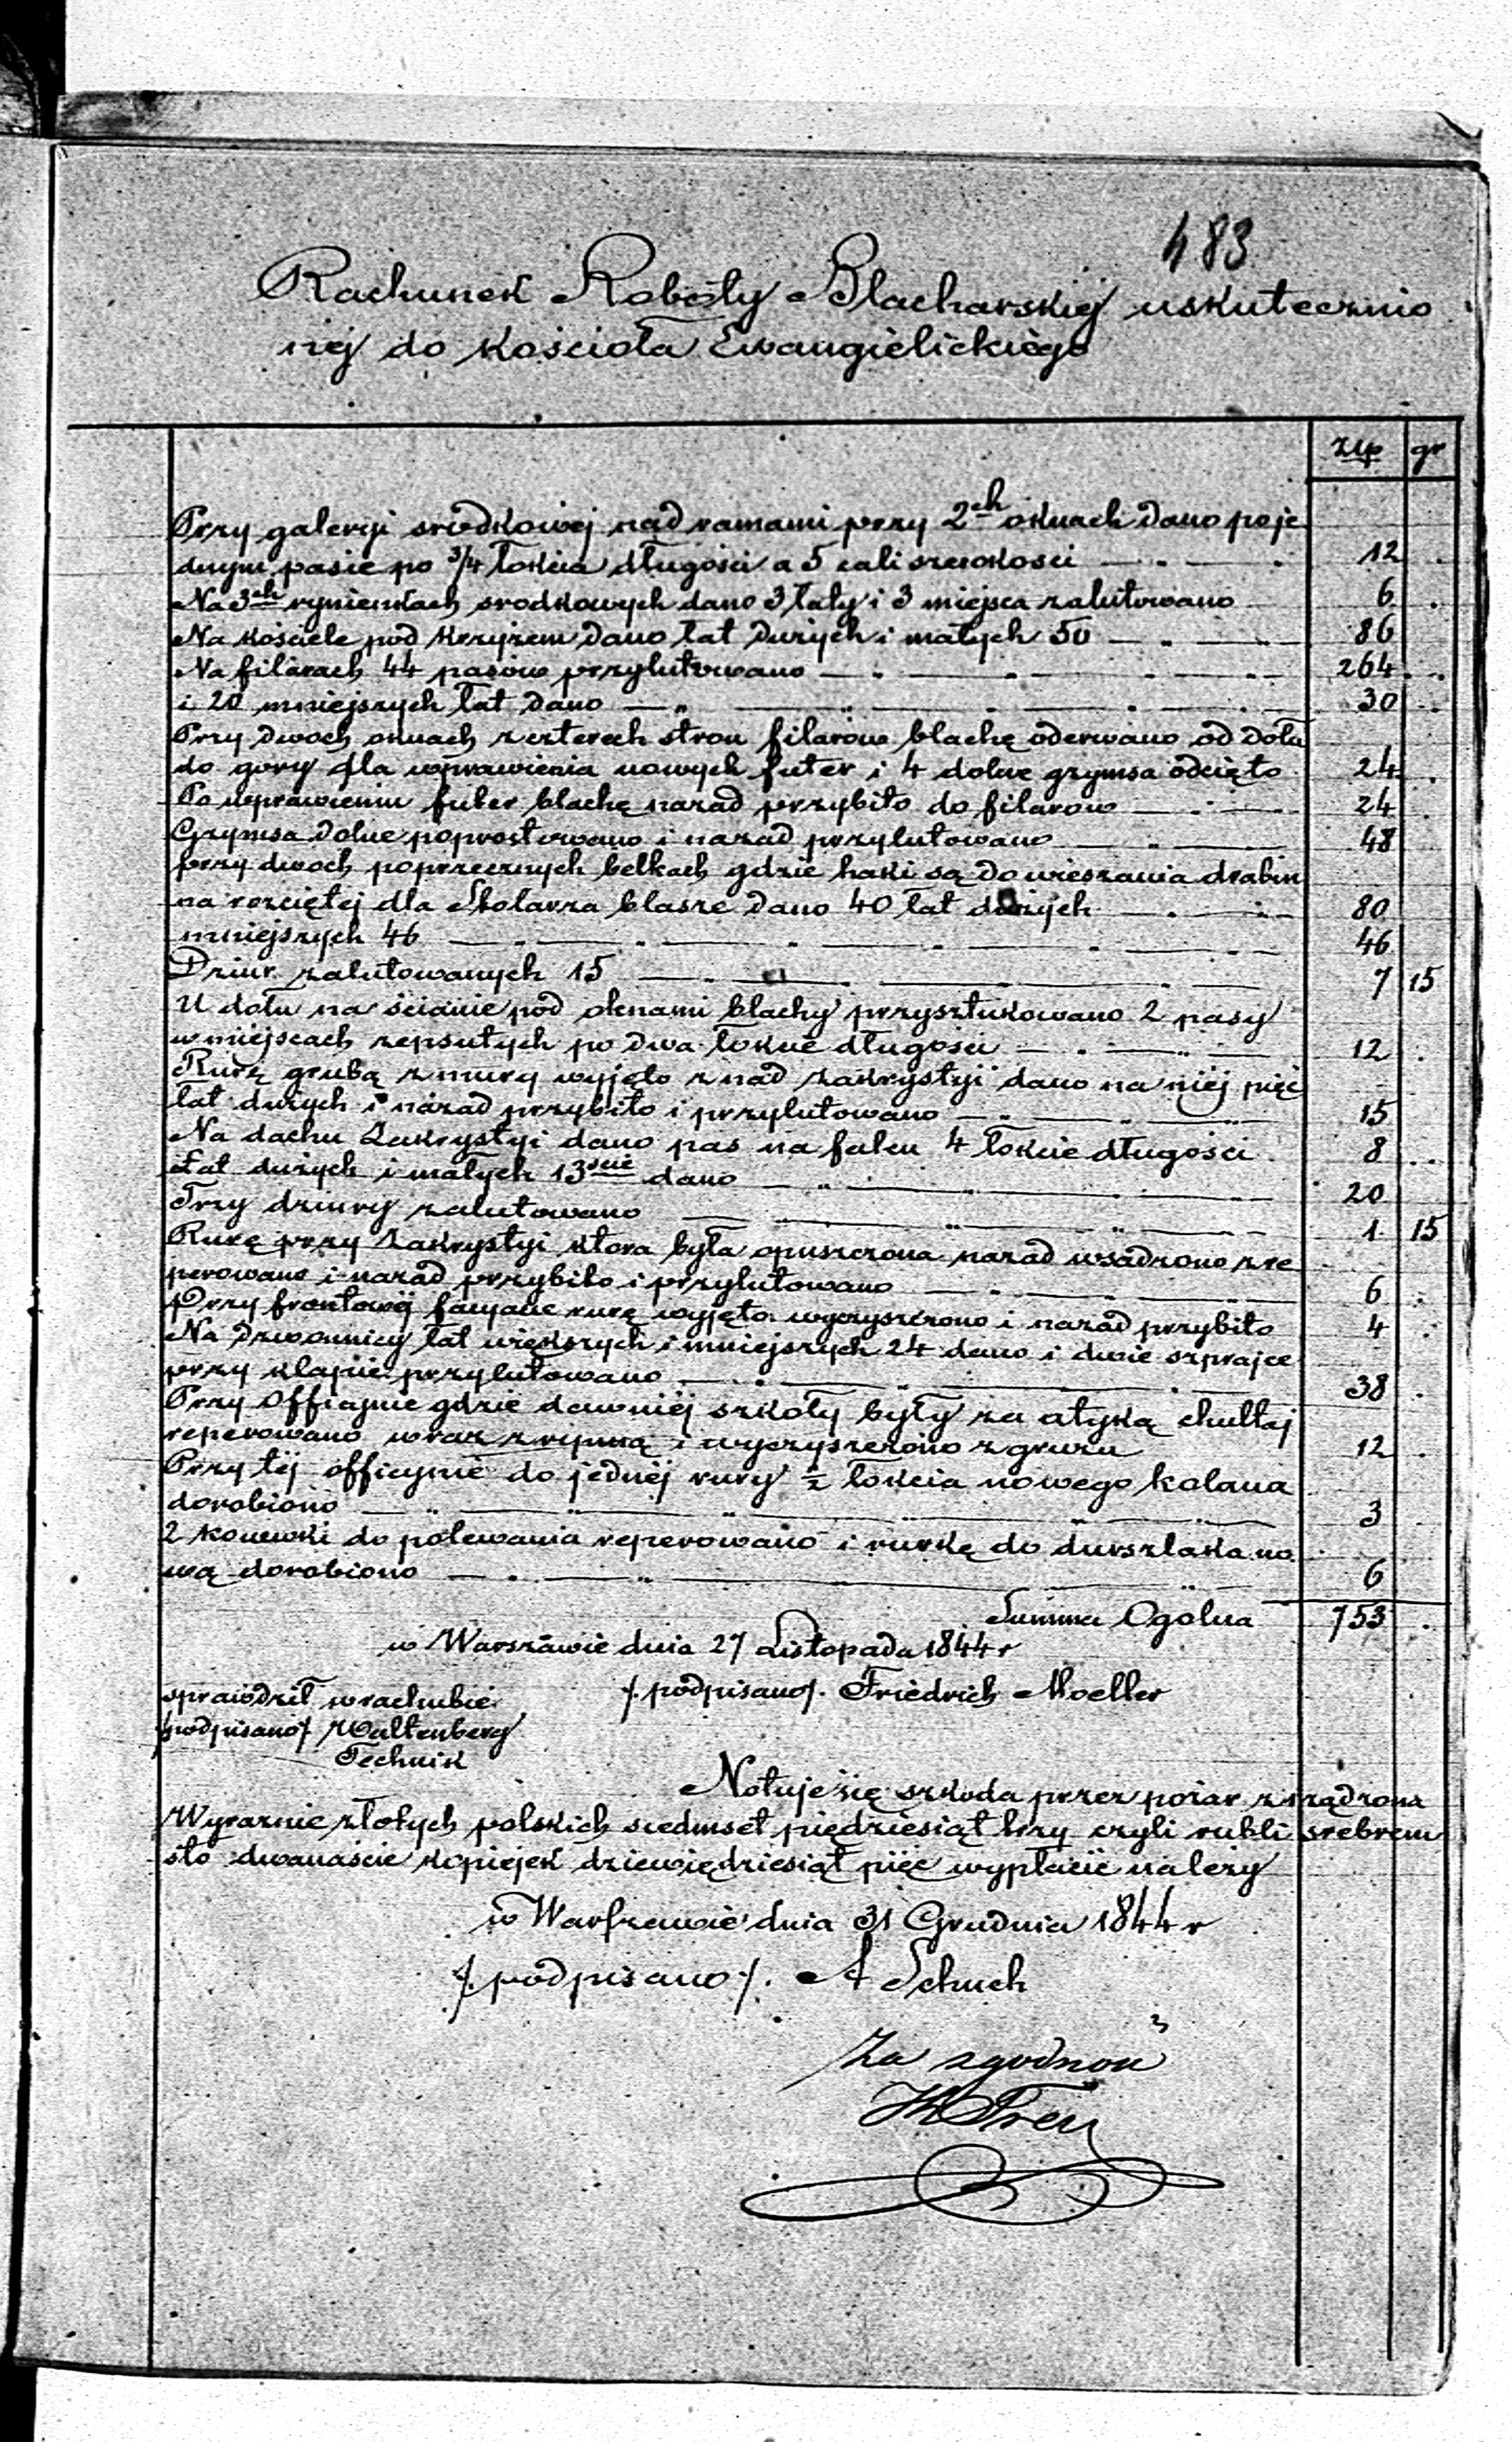 483
Rachunek Roboty Blacharskiej uskutecznio
néj do kościoła Ewangielickiego
złp gr
Przy galeryi srodkowej nad ramami przy 2ch oknach dano poje
dnym pasie po 3/4 łokcia długości a 5 cali szerokosci 12
Na 3ch rynienkach srodkowych dano 3 łaty i 3 miejsca zalutowano 6
Na kościele pod krzyżem dano łat dużych i małych 50 86
Na filarach 44 pasów przylutowano 264
i 20 mniejszych łat dano 30
Przy dwoch oknach z czterech stron filarow blachę oderwano od dołu
do gory dla wprawienia nowych futer i 4 dolne grzymsa odcięto 24
Po wprawieniu futer blachę nazad przybito do filarow 24
Grzymsa dolne poprostowano i nazad przylutowano 48
przy dwoch poprzecznych belkach gdzie haki są do wieszania drabin
na rozciętej dla Stolarza blasze dano 40 łat dużych 80
mniejszych 46 46
Dziur zalutowanych 15 7 15
U dołu na ścianie pod oknami blachy przysztukowano 2 pasy
w miejscach zepsutych po dwa łokcie długości 12
Rurę grubą z mury wyjęto z nad zakrystyi dano na niéj pięć
łat dużych i nazad przybito i przylutowano 15
Na dachu Zakrystyi dano pas na falcu 4 łokcie długości 8
Łat dużych i małych 13ście dano 20
Trzy dziury zalutowano 1 15
Rurę przy Zakrystyi ktora była opuszczona nazad wsadzono zre
perowano i nazad przybito i przylutowano 6
Przy frontowéj facyacie rurę wyjęto wyczyszczono i nazad przybito 4
Na Dzwonnicy łat większych i mniejszych 24 dano i dwie szprajce
przy klapie przylutowano 38
Przy Officynie gdzie dawniéj szkoły były za atyką
reperowano wraz z rynną i wyczyszczono z gruzu 12
Przy téj officynie do jednéj rury 1/2 łokcia nowego kolana
dorobiono 3
2 konewki do polewania reperowano i rurkę do durszlaka no
wą dorobiono 6
Summa Ogolna 753
w Warszawie dnia 27 Listopada 1844 r
/. podpisano /. Friedrich Moeller
sprawdził w rachubie
/podpisano/ Waltenberg
Technik
Notuje się szkoda przez pożar zrządzona
Wyraznie złotych polskich siedmset pięćdziesiąt trzy czyli rubli srebrem
sto dwanaście kopiejek dziewięćdziesiąt pięć wypłacić należy
w Warszawie dnia 31 Grudnia 1844 r
/. podpisano /. A Schuch
Za zgodność